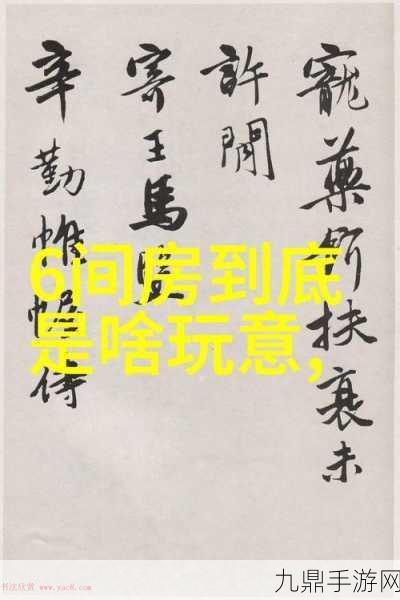 寵藥扶衰未
許聞
寄王馬
辛勤帷侍
6间房到底
是啥玩意,
书法欣赏 www.yac8.com
九鼎手游网